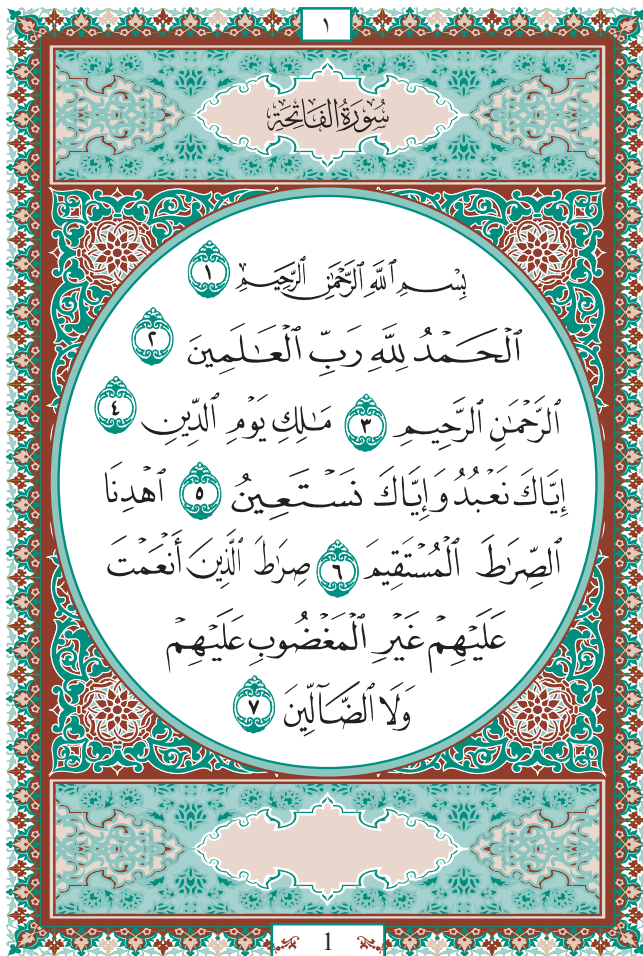 ١
سُورَةُ الفَاتِحَةِ
بِسْمِ ٱللَّهِ ٱلرَّحْمَٰنِ ٱلرَّحِيمِ ١
ٱلْحَمْدُ لِلَّهِ رَبِّ ٱلْعَٰلَمِينَ ٢
ٱلرَّحْمَٰنِ ٱلرَّحِيمِ ٣ مَٰلِكِ يَوْمِ ٱلدِّينِ ٤
إِيَّاكَ نَعْبُدُ وَإِيَّاكَ نَسْتَعِينُ ٥ ٱهْدِنَا
ٱلصِّرَٰطَ ٱلْمُسْتَقِيمَ ٦ صِرَٰطَ ٱلَّذِينَ أَنْعَمْتَ
عَلَيْهِمْ غَيْرِ ٱلْمَغْضُوبِ عَلَيْهِمْ
وَلَا ٱلضَّآلِّينَ ٧
1